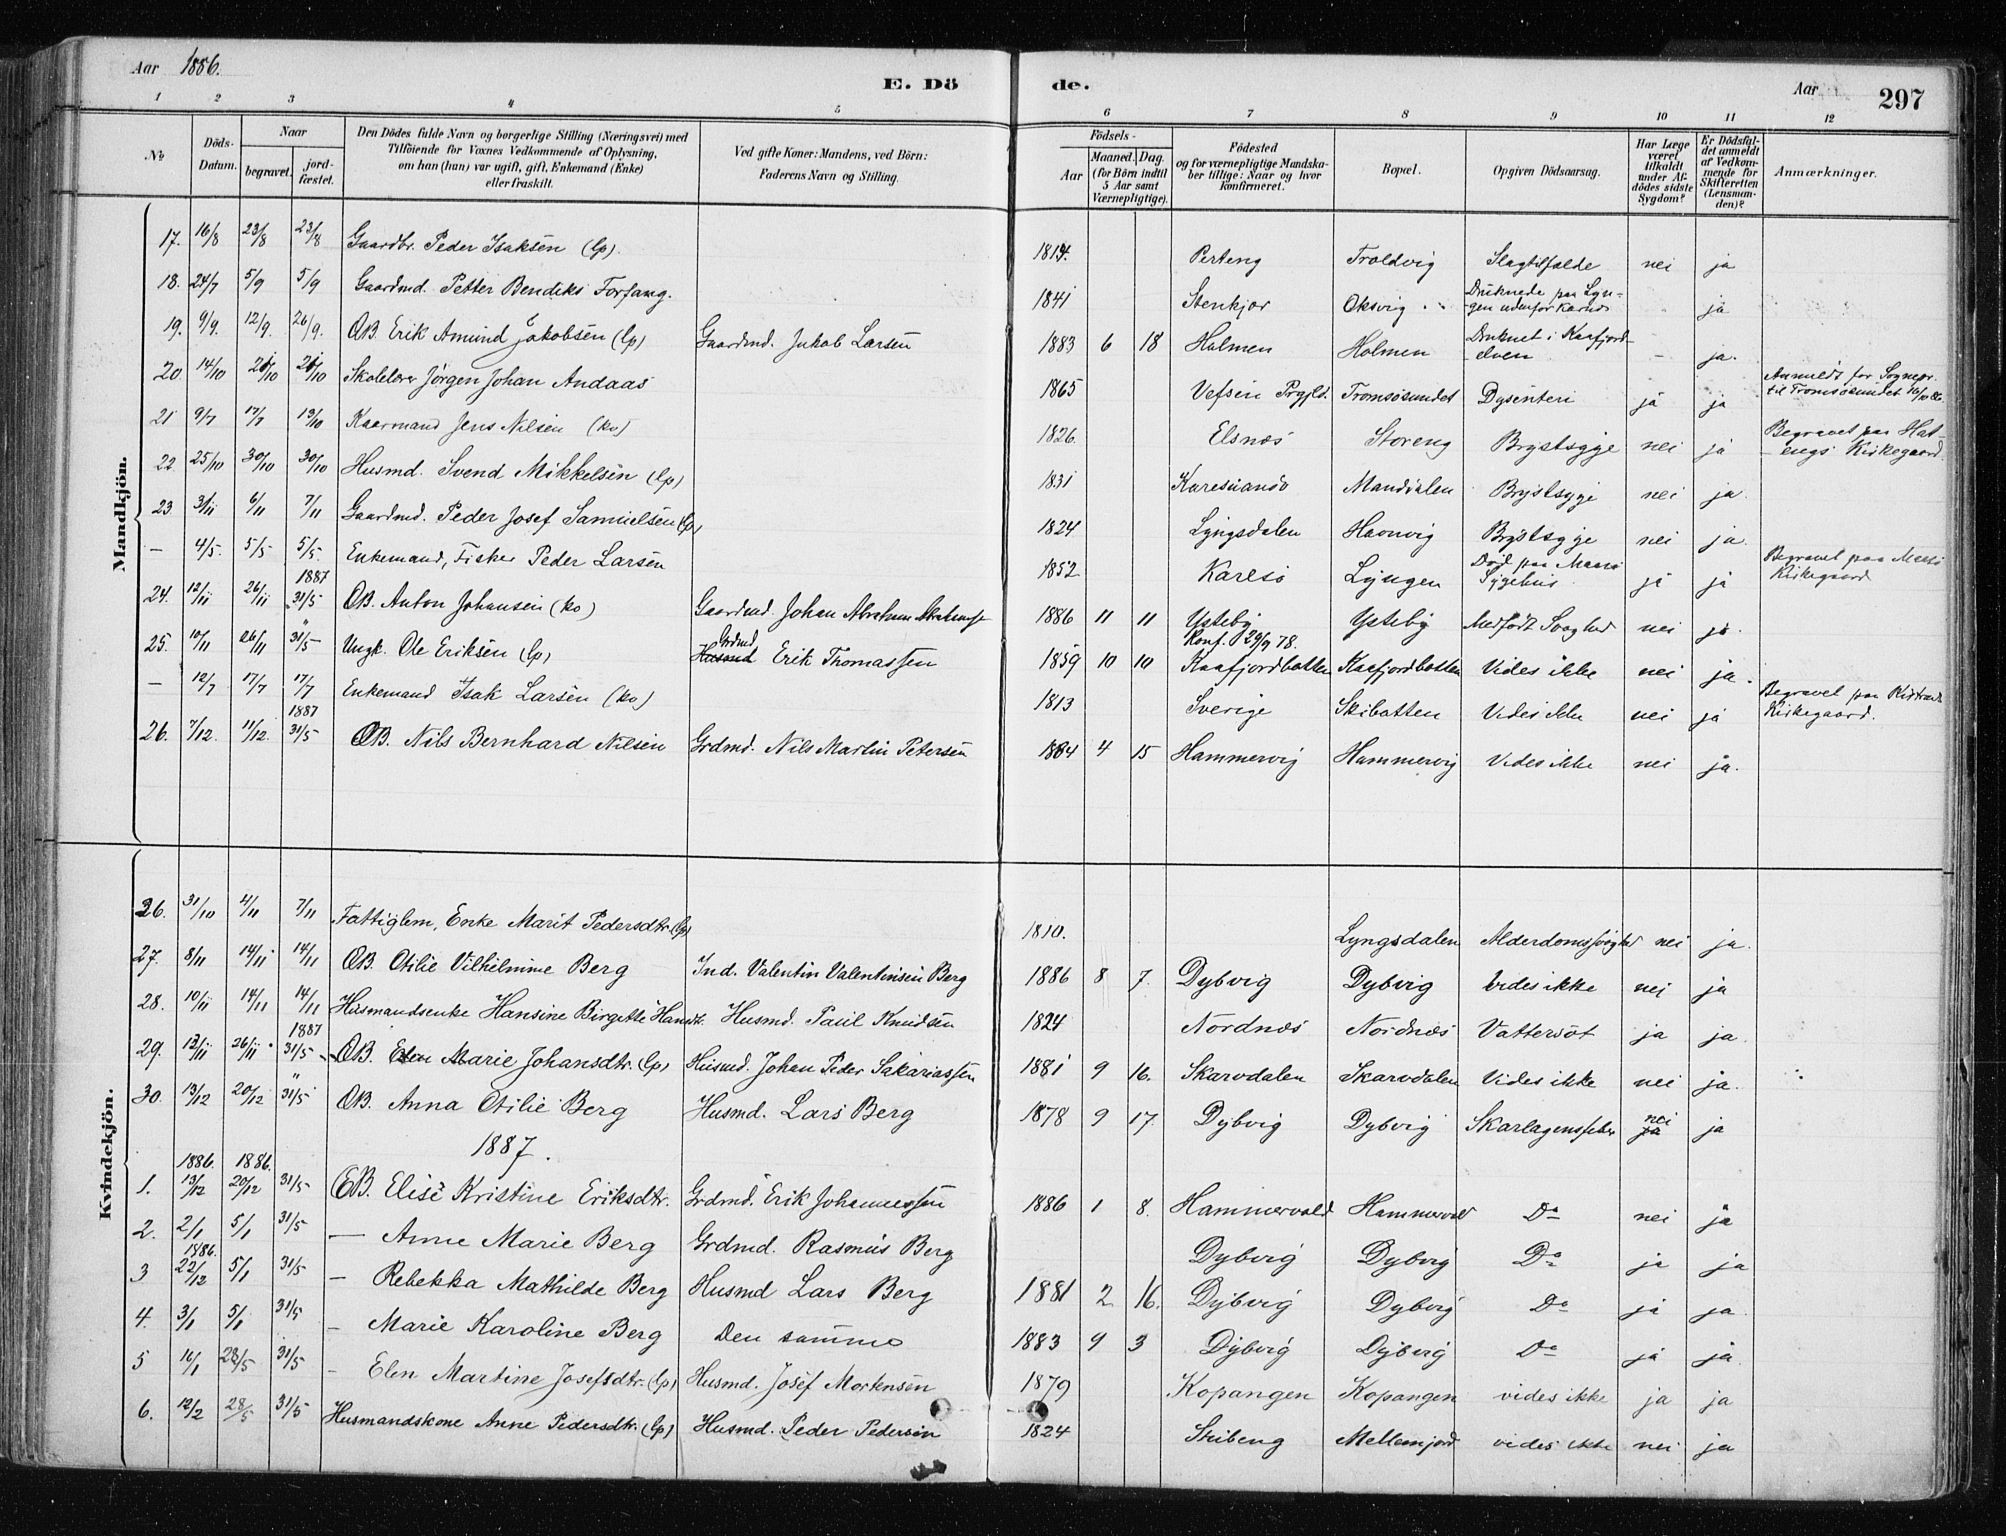 Aar 1886.
E. Döde.
Aar 297
1 2 3 4 5 6 7 8 9 10 11 12
No
Döds-Datum.
Naar
begravet.
jordfæstet.
Den Dödes fulde Navn og borgerlige Stilling (Næringsvei) med
Tilföiende for Voxnes Vedkommende af Oplysning,
om han (hun) var ugift, gift, Enkemand (Enke)
eller fraskilt.
Ved gifte Koner: Mandens, ved Börn:
Faderens Navn og Stilling.
Födsels-
Aar
Maaned. Dag.
(for Börn indtil
5 Aar samt
Værnepligtige).
Födested
og for værnepligtige Mandskaber tillige: Naar og hvor
konfirmeret.
Bopæl.
Opgiven Dödsaarsag.
Har Læge
været
tilkaldt
under Afdödes sidste
Sygdom?
Er Dödsfaldet anmeldt
af Vedkommende for
Skifteretten
(Lensmanden)?
Anmærkninger.
Mandkjön.
17. 16/8 23/8 23/8 Gaardbr. Peder Isaksen (lp). 1814. Perteng Troldvig Slagtilfælde nei ja
18. 24/7 5/9 5/9 Gaardmd. Petter Bendiks Forfang. 1841 Stenkjær Oksvig Druknede paa Lyngen udenfor ja
19. 9/9. 12/9. 26/9. ÆB. Erik Amund Jakobsen (lp) Gaardmd. Jakob Larsen 1883 6 18 Holmen Holmen Druknet i Kaafjordelven – ja.
20. 14/10 20/10 20/10 Skolelærer Jørgen Johan Andaas 1865 Vefsen Prgjld. Tromsøsundet Dysenteri ja ja Anmeldt for Sognepr. til Tromsøsundet 16/10 86.
21 9/7 17/7 19/10 Kaarmand Jens Nilsen (kv) 1826. Elsnæs Storeng Brystsyge nei ja Begravet paa Hatengs Kirkegaard.
22 25/10 30/10 30/10 Husmd. Svend Mikkelsen (lp) 1831 Karesuando Mandalen Brystsyge nei ja.
23. 3/11 6/11 7/11 Gaardmd. Peder Josef Samuelsen (lp) 1824 Lyngsdalen Havnvig Brystsyge nei ja.
– 4/5. 5/5 5/5. Enkemand, Fisker Peder Larsen 1852. Karlsø Lyngen Død paa Maasø Sygehus ja ja Begravet paa Maasø Kirkegaard
1887
24. 12/11 26/11 31/5 ÆB. Anton Johansen (kv) Gaardmd. Johan Abraham 1886 11 11 Ysteby Ysteby Medfødt Svaghed nei ja.
25. 10/11 26/11 31/5 Ungk. Ole Eriksen (lp) Husmd Grdmd Erik Thomassen 1859 10 10 Konf. 29/9 78. Kaafjordbotten Kaafjordbotten Vides ikke nei ja.
– 12/7 17/7 17/7 Enkemand Isak Larsen (kv) 1813 Sverige Skibotten Vides ikke nei ja Begravet paa Kirkegaard.
1887
26. 7/12. 11/12. 31/5 ÆB. Nils Bernhard Nilsen Grdmd. Nils Martin Petersen 1884 4 15 Hammervig Hammervig Vides ikke nei ja.
Kvindekjön.
26. 31/10 4/11 7/11 Fattiglem, Enke Marit Pedersdtr. (lp) 1810. Lyngsdalen Alderdomssvaghed nei ja.
27. 8/11 14/11 14/11 ÆB. Otilie Vilhelmine Berg Ind. Valentin Valentinsen Berg 1886 8 7. Dybvig Dybvig Vides ikke nei ja
28. 10/11 14/11 14/11 Husmandsenke Hansine Birgitte Hansdtr. Husmd. Paul Knudsen 1824 Nordnæs Nordnæs Vattersot ja ja.
1887
29. 12/11 26/11 31/5 ÆB. Elen Marie Johansdtr. (lp) Husmd. Johan Peder Sakariassen 1881 9 16. Skarvdalen Skarvdalen Vides ikke nei ja.
30. 13/12 20/12 31/5 ÆB. Anna Otilie Berg Husmd. Lars Berg 1878 9 17. Dybvig Dybvig Skarlagensfeber ja nei ja
1887.
1886. 1886.
1. 13/12 20/12 31/5 ÆB. Elise Kristine Eriksdtr. Grdmd. Erik Johannessen 1886 1 8. Hammervold Hammervold Do nei ja
2. 2/1 5/1 31/5 – Anne Marie Berg Grdmd. Rasmus Berg Dybvig Dybvig Do ja ja
1886.
3 22/12 5/1 31/5 – Rebekka Mathilde Berg Husmd Lars Berg 1881 2 16. Dybvig Dybvig Do ja ja.
4. 3/1 5/1 31/5 – Marie Karoline Berg Den samme 1883 9 3 Dybvig Dybvig Do ja ja.
5 16/1 28/5 31/5 – Elen Martine Josefsdtr. (lp) Husmd. Josef Mortensen 1879 Kopangen Kopangen vides ikke ja ja
6. 12/2 28/5 31/5 Husmandskone Anne Pedersdtr. (lp) Husmd. Peder Pedersen 1824 Stubeng Mellemjord vides ikke nei ja